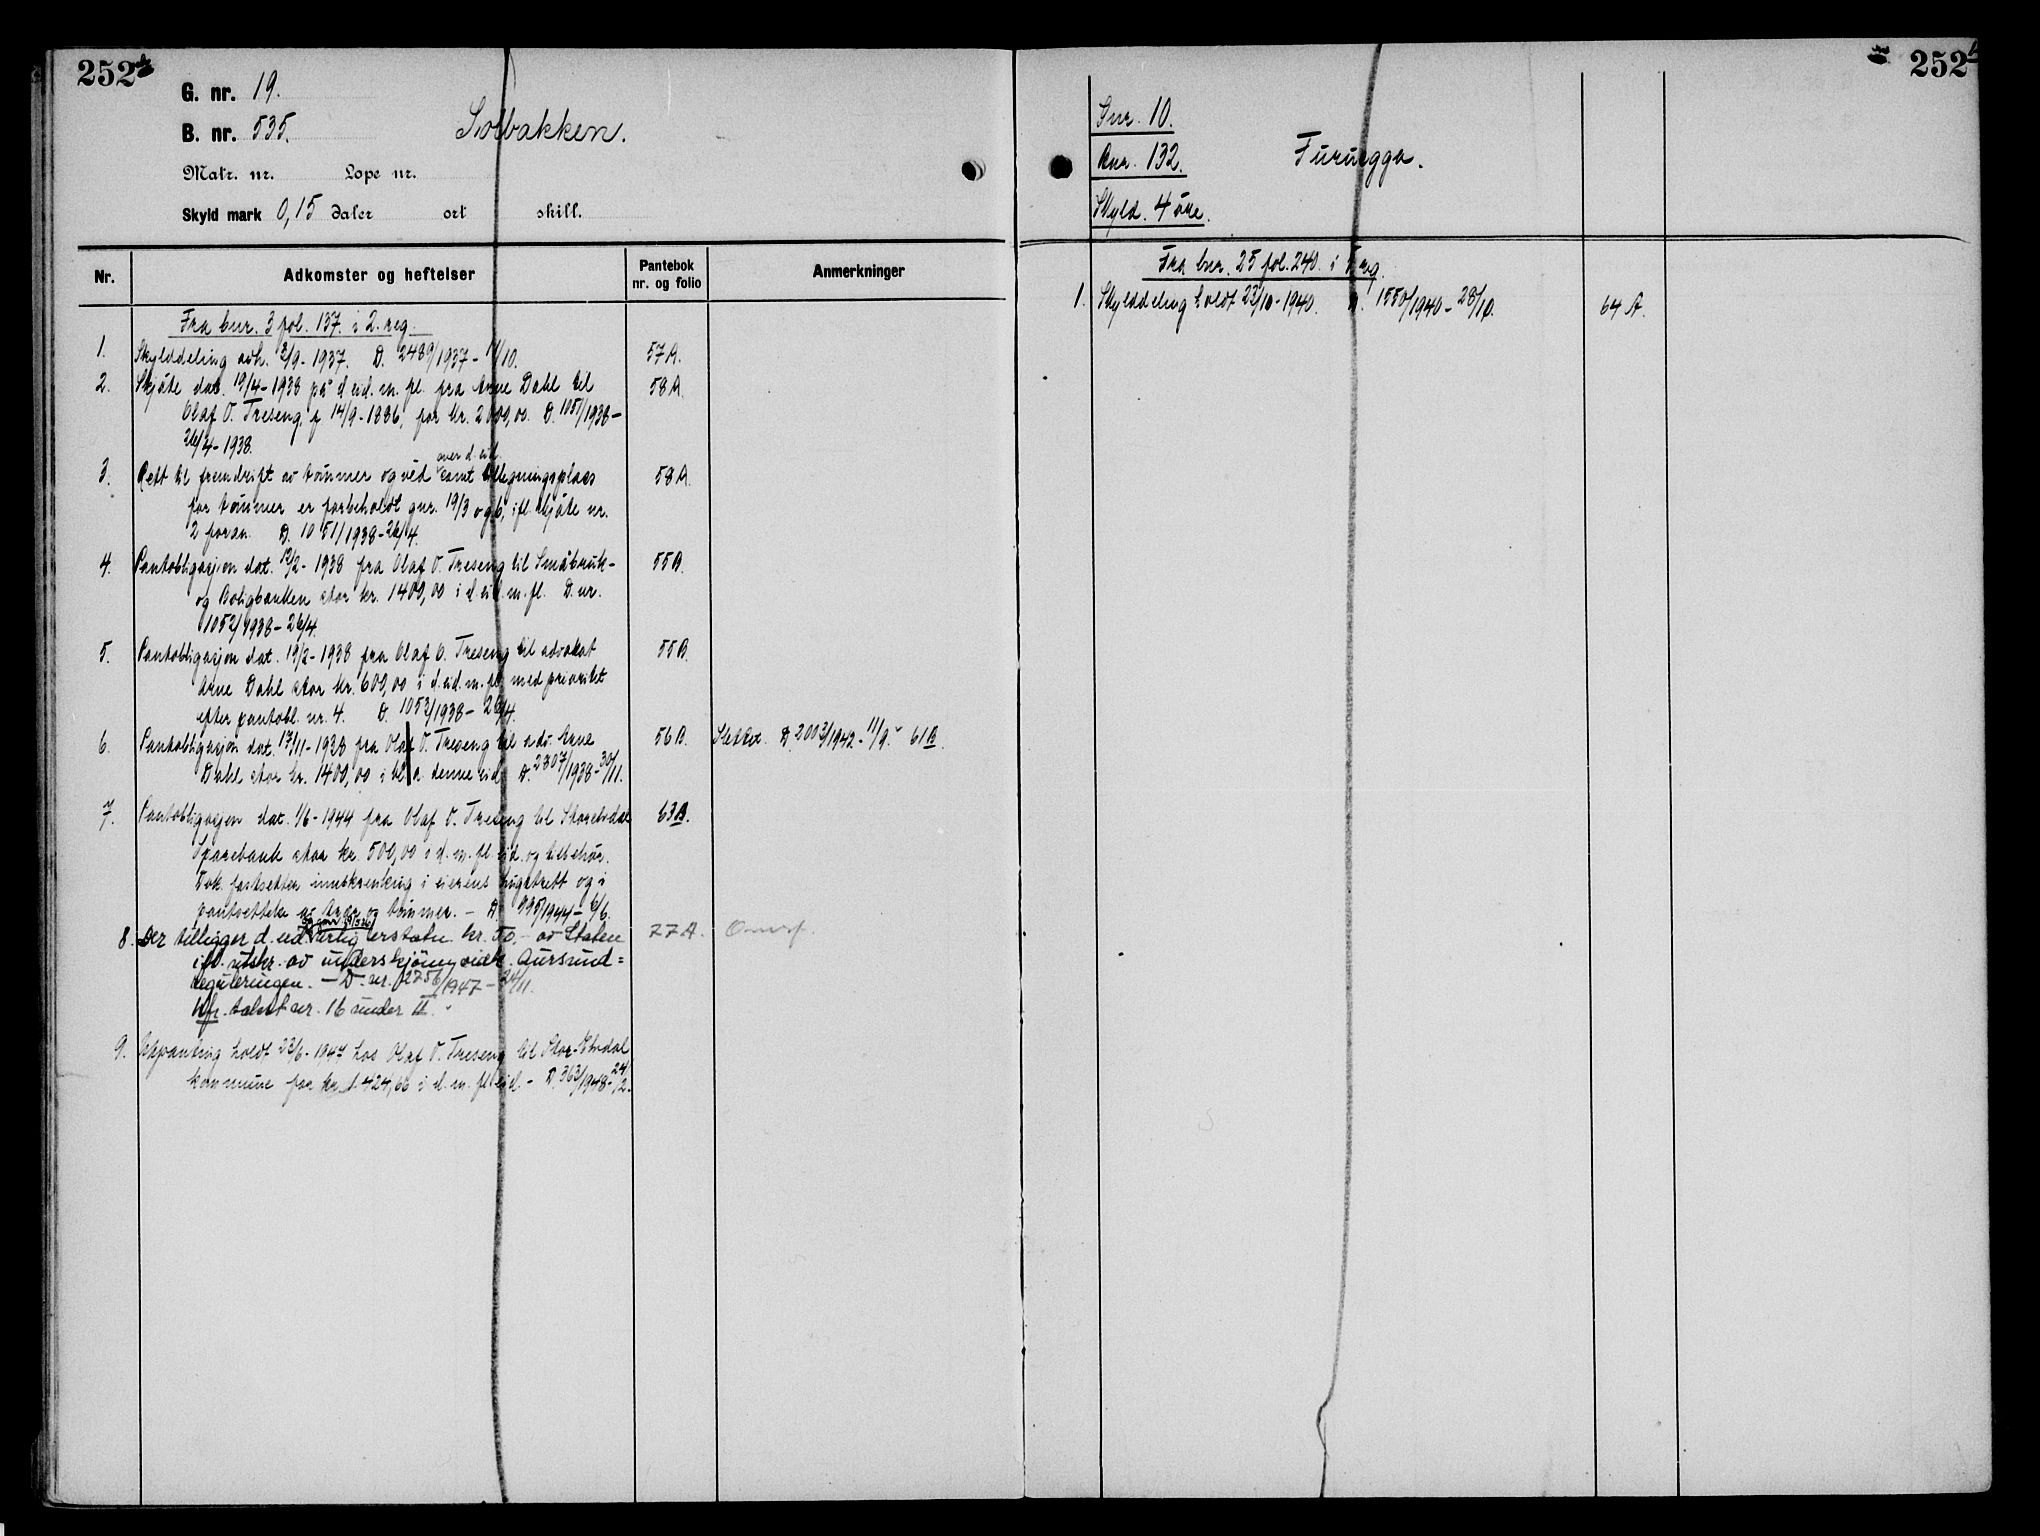 252
G. nr. 19.
B. nr. 535. Solbakken.
Matr. nr. Lope nr.
Skyld mark 0,15 daler ort skill.
Nr. Adkomster og heftelser Pantebok nr. og folio Anmerkninger
Fra bnr. 3 fol. 137. i 2. reg.
1. Skylddeling avh. 2/9-1937. D. 2489/1937 - 14/10. 57A.
2. Skjøte dat. 19/4-1938 på d. eid. m. fl. fra Arne Dahl til 58A.
Olaf O. Treseng, f 14/9-1886, for kr. 2000,00. D. 1051/1938-
26/4-1938.
over d. eid.
3. Rett til fremdrift av tømmer og ved samt tillegningsplass 58A.
for tømmer er forbeholdt gnr. 19/3 og 6, ifl. skjøte nr.
2 foran. D. 1051/1938-26/4.
4. Pantobligasjon dat. 19/2-1938 fra Olaf O. Treseng til Småbruk- 55B.
og Boligbanken stor kr. 1400,00 i d. eid. m. fl. D. nr.
1052/1938-26/4.
5. Pantobligasjon dat. 19/2-1938 fra Olaf O. Treseng til advokat 55B.
Arne Dahl stor kr. 600,00 i d. eid. m. fl. med prioritet
efter pantobl. nr. 4. D. 1053/1938-26/4.
6. Pantobligasjon dat. 17/11-1938 fra Olaf O. Treseng til adv. Arne 56B. Slettet. D. 2003/1942-11/9. 61B.
Dahl stor kr. 1400,00 i bl. a. denne eid. D. 2807/1938-30/11.
7. Pantobligasjon dat. 1/6-1944 fra Olaf O. Treseng til Storelvdal 63B.
Sparebank stor kr. 500,00 i d. m. fl. eid. og tilbehør.
Dok. fastsetter innskrenking i eierens hugstrett og i
pantsettelse av trær og tømmer. - D. 995/1944-6/6.
8. Der tilligger d. eid. årlig erstatn. kr. 50,- av Staten 77A.
ifl. utskr. av underskjønn vedk. Aursund=
reguleringen. - D. nr. 2756/1947-24/11.
Kfr. tilført nr. 16 under II.
9. Utpanting holdt 23/6-1947 hos Olaf O. Treseng til Stor-Elvdal
kommune for kr. 1.424,66 i d. m. fl. eid. - D. 363/1948-24/2.
252b
Gnr. 10.
Bnr. 132. Furuegga.
Skyld. 4 øre.
Fra bnr. 25 fol. 240. i 1 reg.
1. Skylddeling holdt 23/10-1940. D. 1550/1940-28/10. 64A.